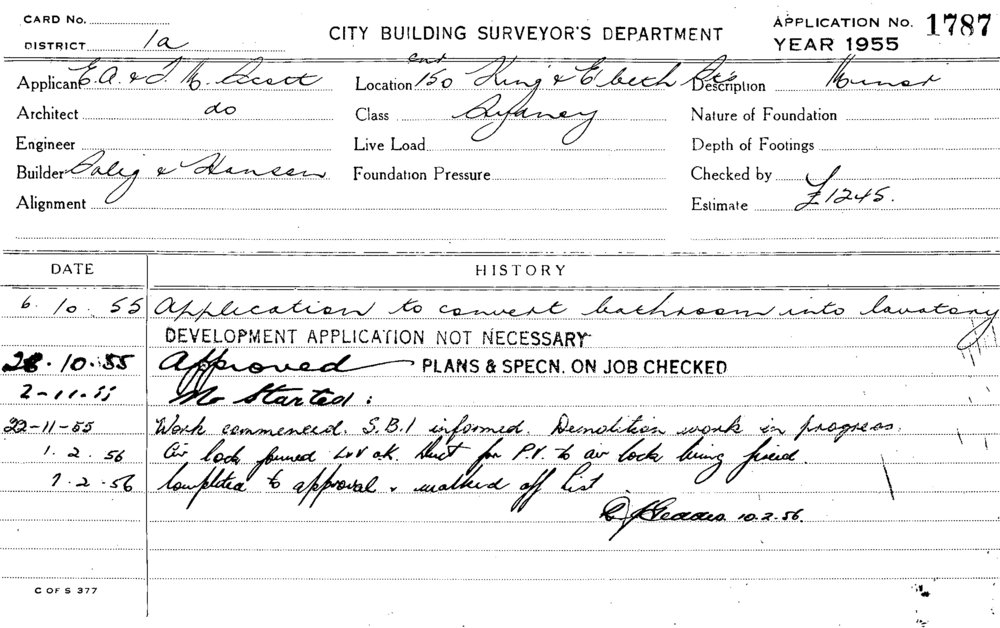 CARD No.
DISTRICT 1a
CITY BUILDING SURVEYOR'S DEPARTMENT
APPLICATION No. 1787
YEAR 1955
Applicant E.A. & T. M. Scott
Location cnr 150 King & E'beth Sts
Description Minor
Architect do
Class Sydney
Nature of Foundation
Engineer
Live Load
Depth of Footings
Builder & Hansen
Foundation Pressure
Checked by
Alignment
Estimate £1245.
DATE HISTORY
6.10.55 Application to convert bathroom into lavatory
DEVELOPMENT APPLICATION NOT NECESSARY
28.10.55 Approved PLANS & SPECN. ON JOB CHECKED
2-11-55 No Started:
22-11-55 Work commenced. S.B.I informed. Demolition work in progress.
1.2.56 Air lock formed L&V ok. Duct for P.V. to air lock being fixed.
7.2.56 Completed to approval & marked off list
Geddes 10.2.56.
C OF S 377